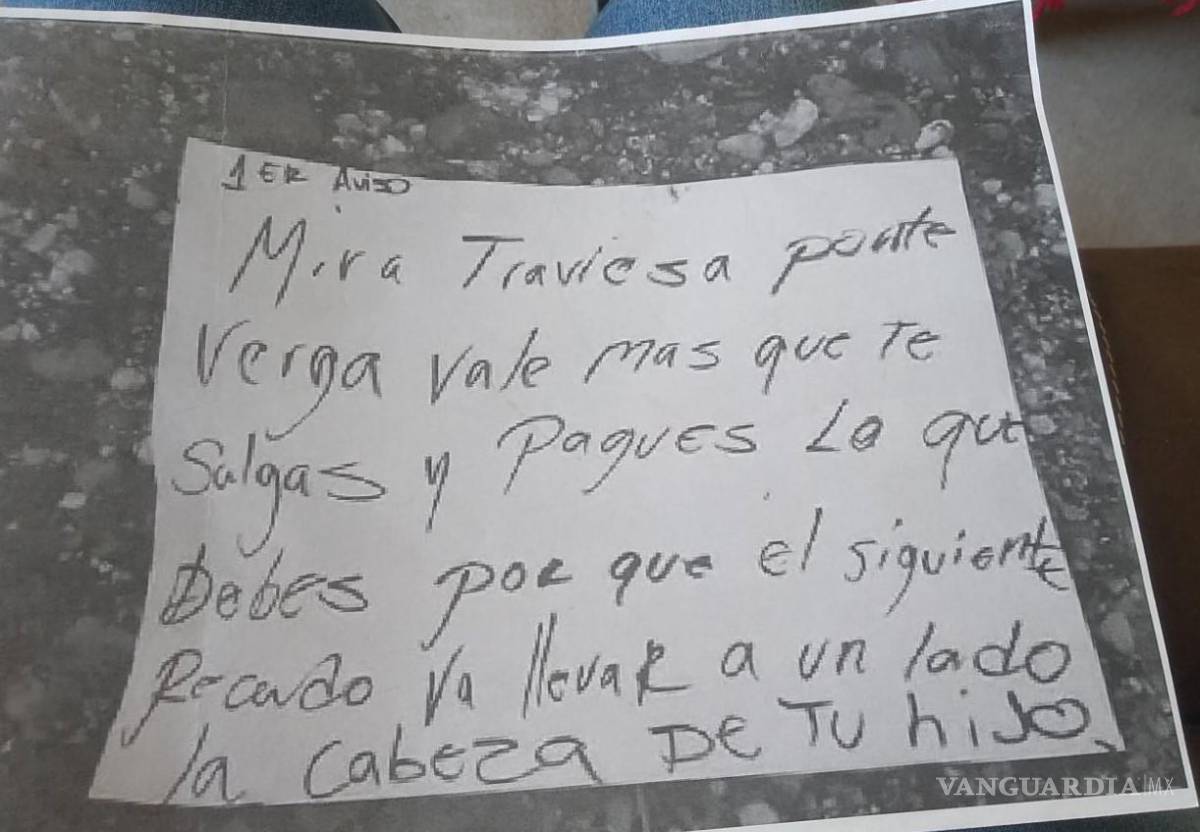 1 ER Aviso
Mira Traviesa ponte
Verga vale mas que Te
Salgas y Pagues Lo que
Debes por que el siguiente
Recado va llevar a un lado
la cabeza DE TU hiJo
VANGUARDIA|MX